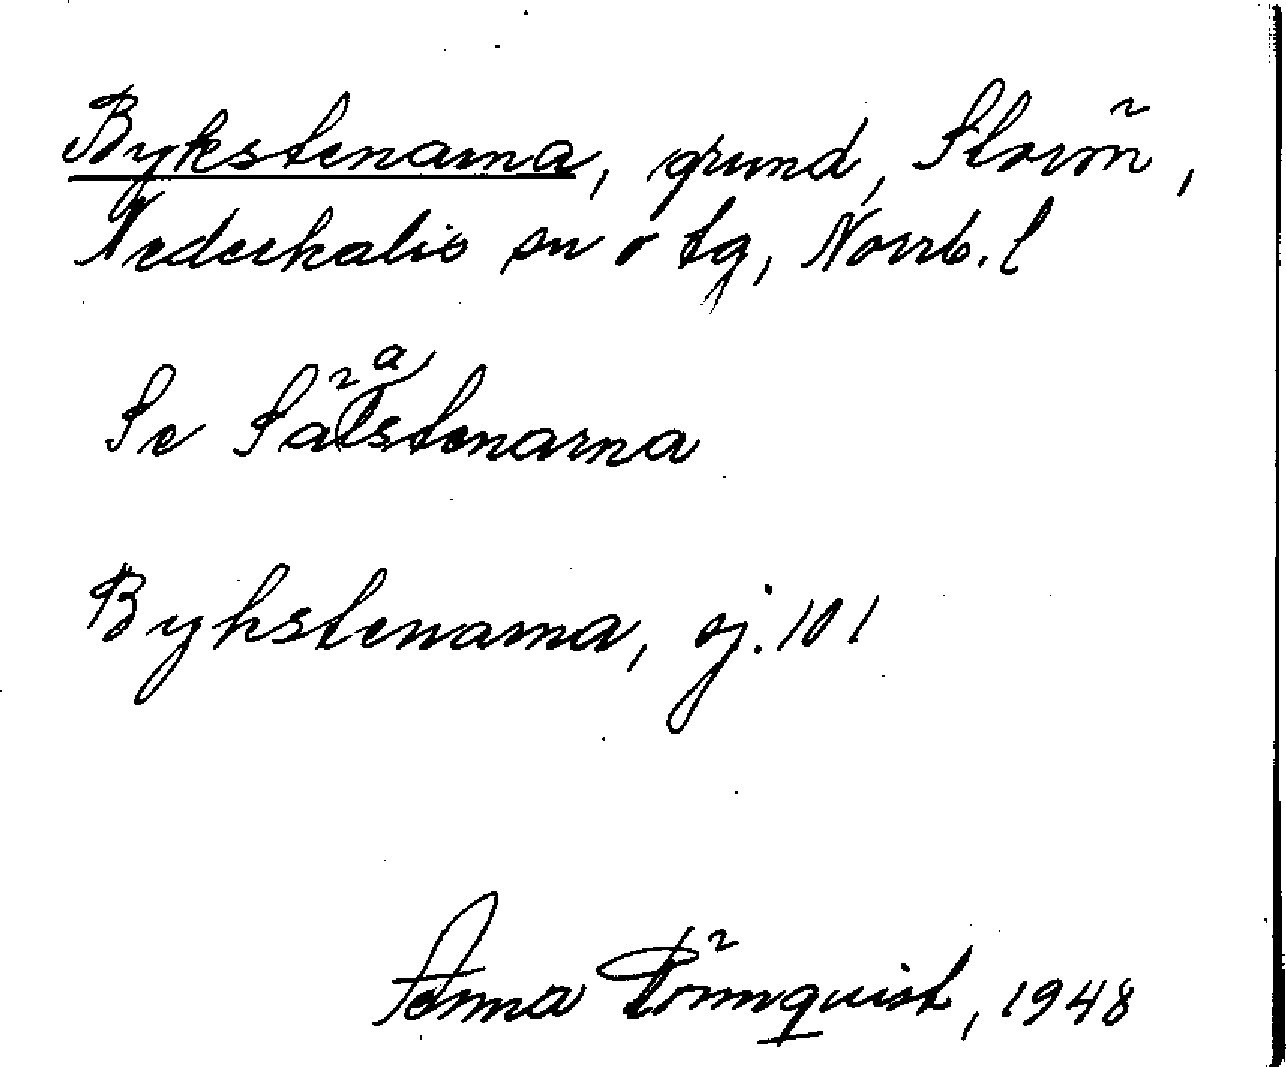 Bykstenarna, grund, Storön,
Nederkalix sn o tg, Norrb. l
Se Sälstenarna
Bykstenarna, sj. 101
Anna Törnquist, 1948